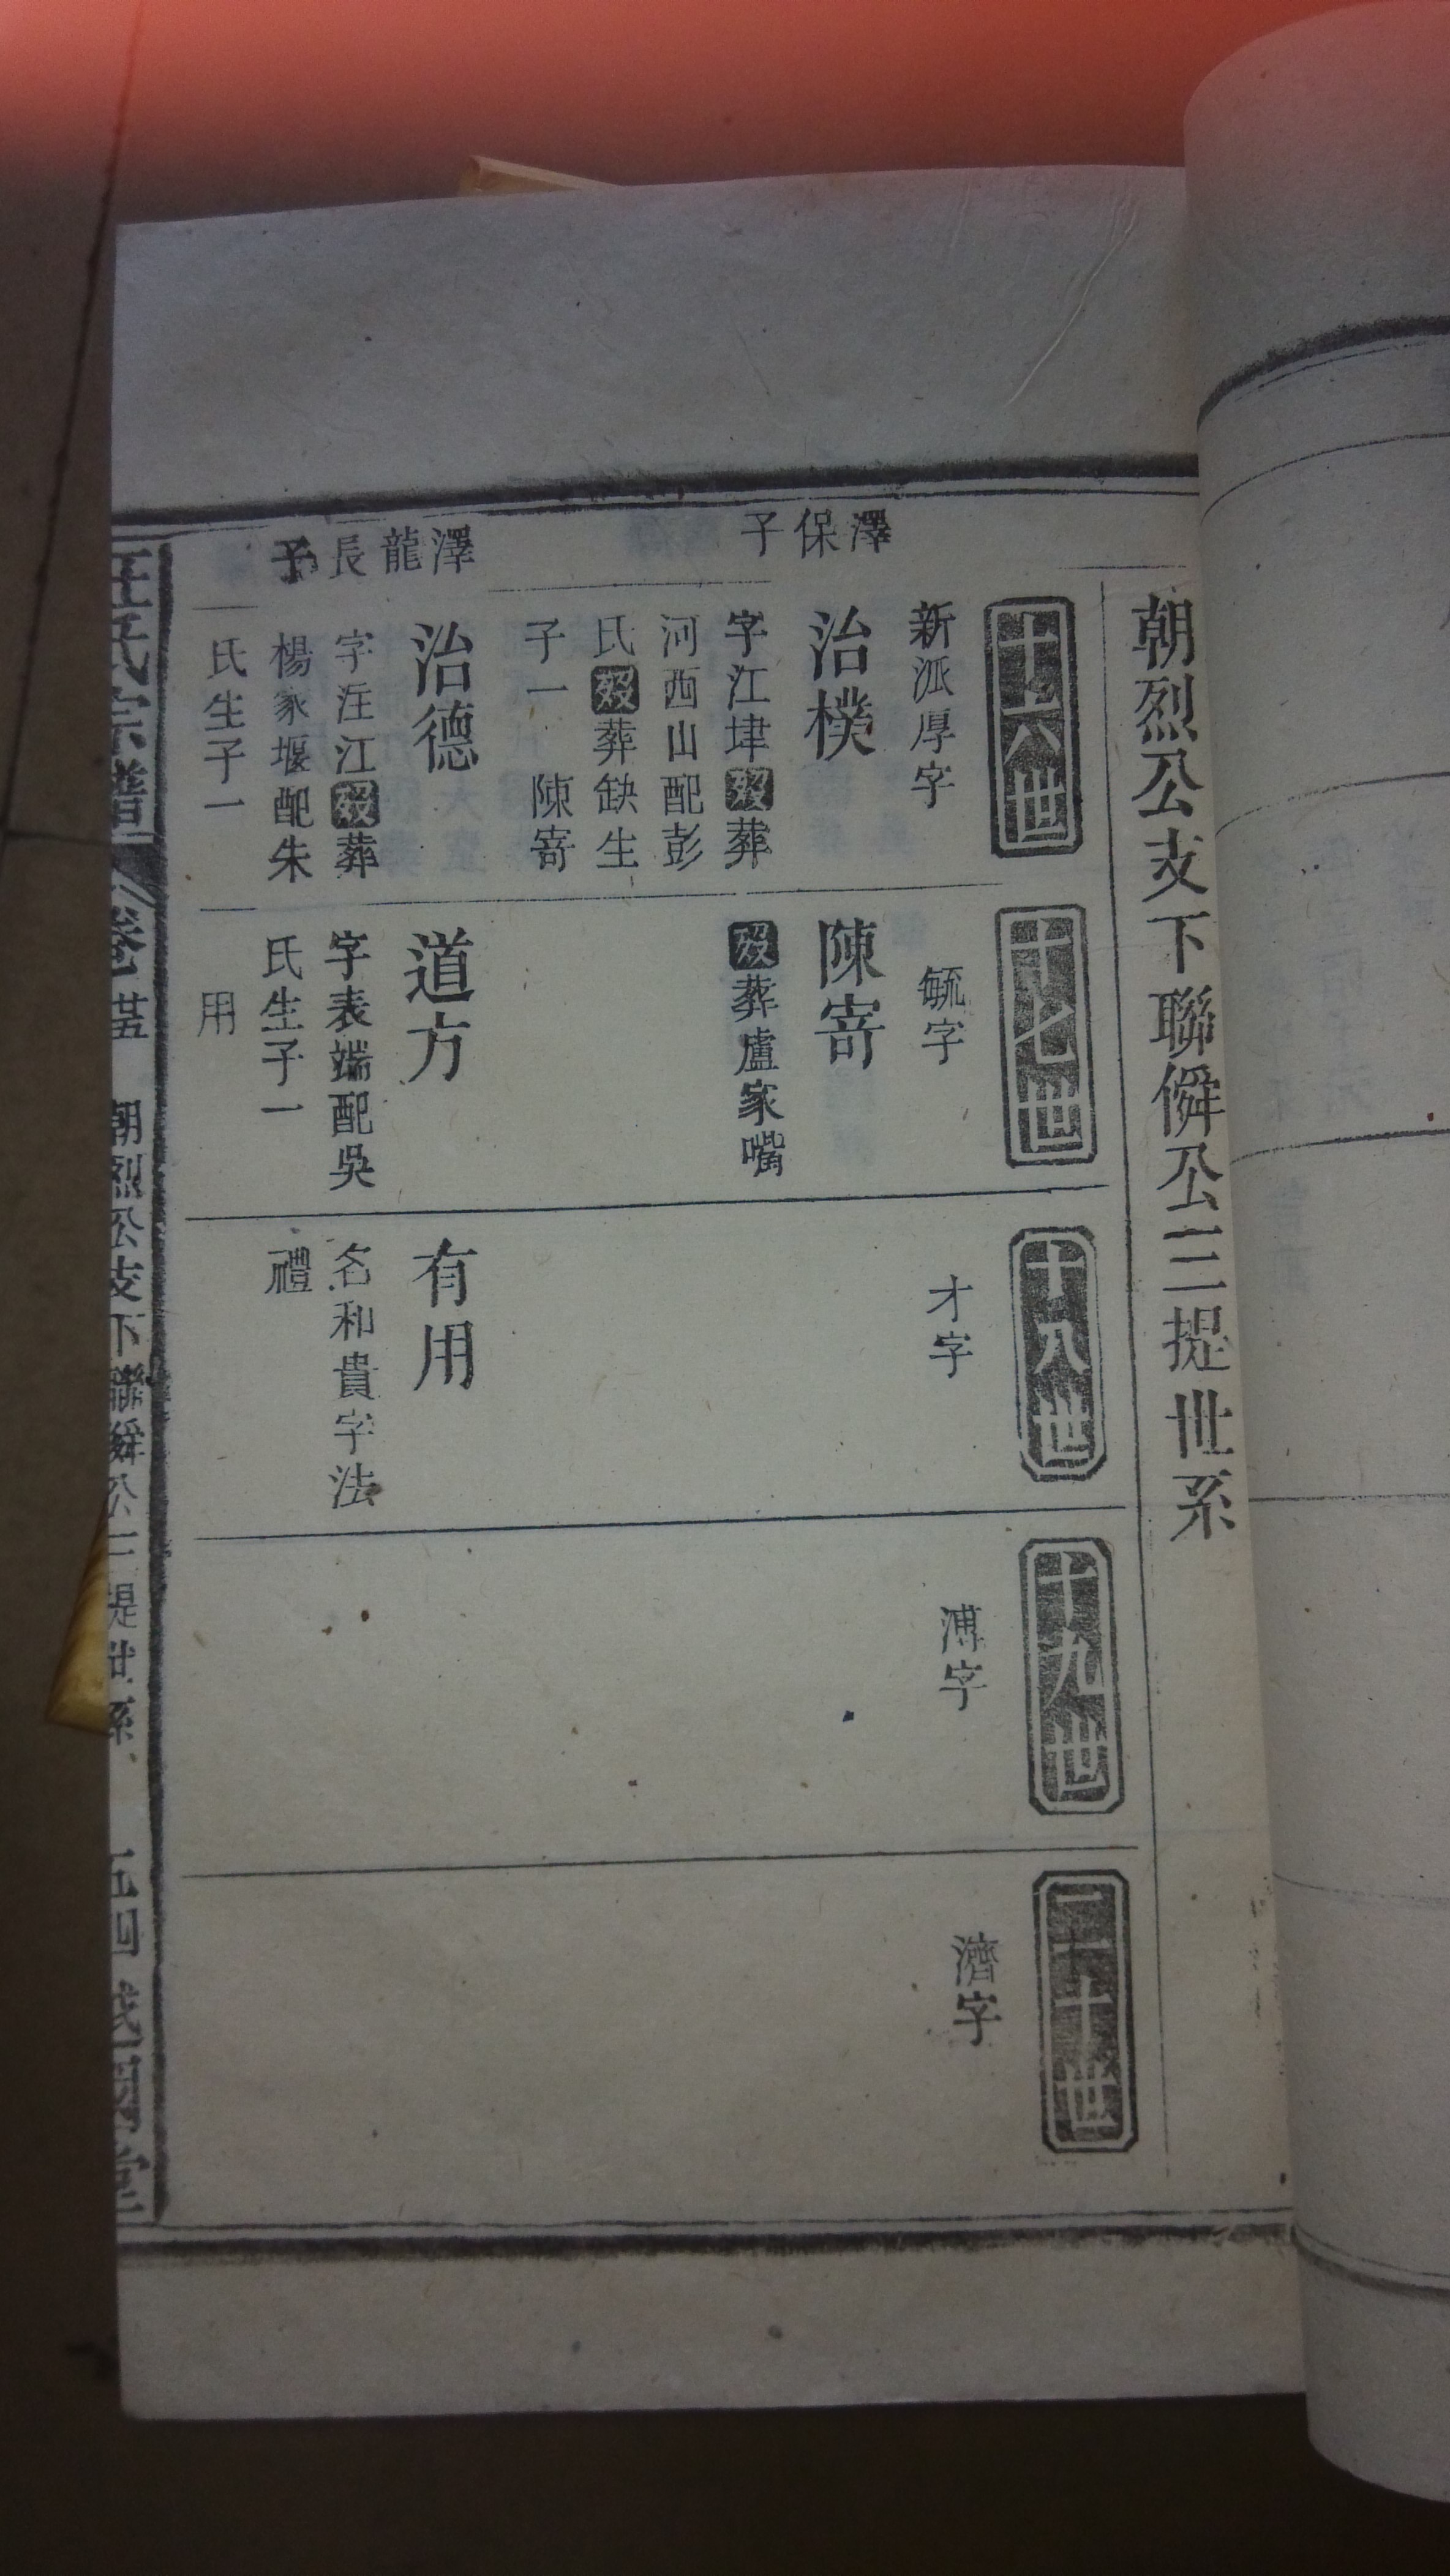 朝烈公支下聯僢公三提世系
十六世
新派厚字
澤保子
治樸
字江埲歿葬
河西山配彭
氏歿葬缺生
子一 陳寄
澤龍長子
治德
字注江歿葬
楊家堰配朱
氏生子一
十七世
毓字
陳寄
歿葬盧家嘴
道方
字表端配吳
氏生子一
用
十八世
才字
有用
名和貴字法
禮
十九世
溥字
二十世
濟字
汪氏宗譜 卷 朝烈公支下聯僢公三提世系 五四 堂